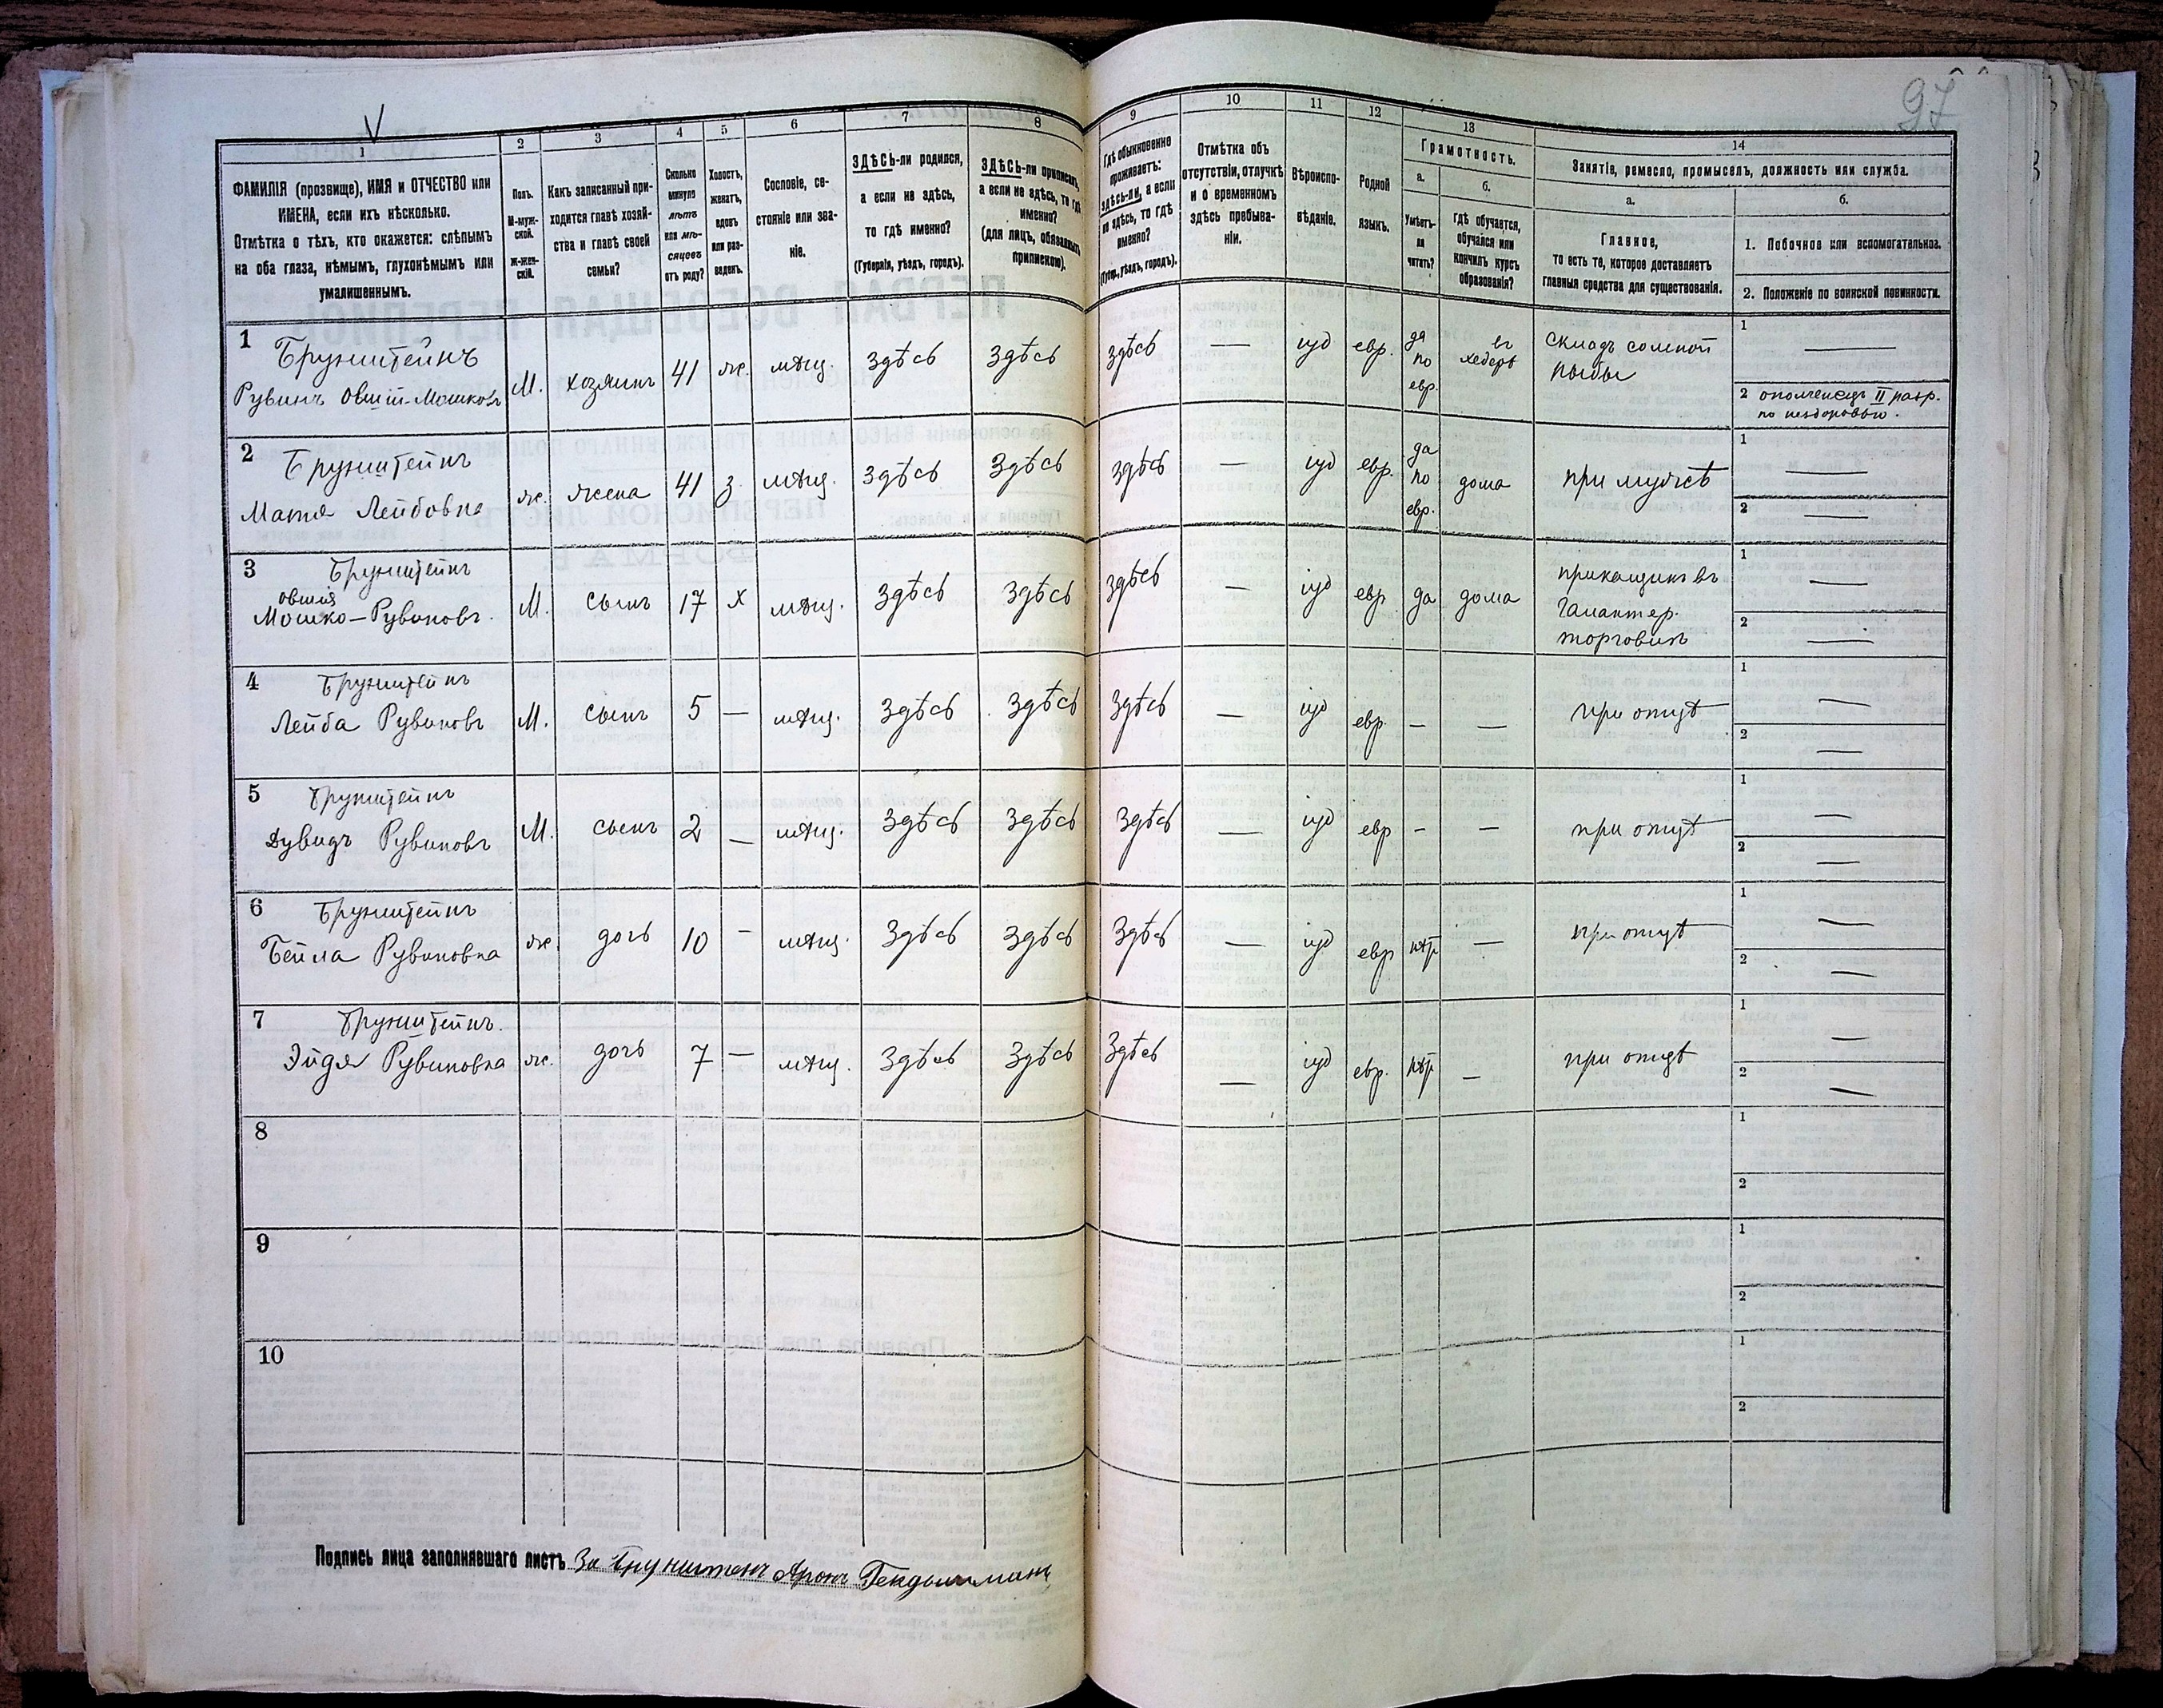 97
1
ФАМИЛІЯ (прозвище), ИМЯ и ОТЧЕСТВО или
ИМЕНА, если ихъ нѣсколько.
Отмѣтка о тѣхъ, кто окажется: слѣпымъ
на оба глаза, нѣмымъ, глухонѣмымъ или
умалишеннымъ.
2
Полъ.
М-муж-
ской.
Ж-жен-
скій.
3
Какъ записанный при-
ходится главѣ хозяй-
ства и главѣ своей
семьи?
4
Сколько
минуло
лѣтъ
или мѣ-
сяцевъ
отъ роду?
5
Холостъ,
женатъ,
вдовъ
или раз-
веденъ.
6
Сословіе, со-
стояніе или зва-
ніе.
7
ЗДѢСЬ-ли родился,
а если не здѣсь,
то гдѣ именно?
(Губернія, уѣздъ, городъ).
8
ЗДѢСЬ-ли приписанъ,
а если не здѣсь, то гдѣ
именно?
(для лицъ, обязанныхъ
припискою).
9
Гдѣ обыкновенно
проживаетъ:
здѣсь-ли, а если
не здѣсь, то гдѣ
именно?
(Губер., уѣздъ, городъ).
10
Отмѣтка объ
отсутствіи, отлучкѣ
и о временномъ
здѣсь пребыва-
ніи.
11
Вѣроиспо-
вѣданіе.
12
Родной
языкъ.
13
Грамотность.
а.
Умѣетъ-
ли
читать?
б.
гдѣ обучается,
обучался или
кончилъ курсъ
образованія?
14
Занятіе, ремесло, промыселъ, должность или служба.
а.
Главное,
то есть то, которое доставляетъ
главныя средства для существованія.
б.
1. Побочное или вспомогательное.
2. Положеніе по воинской повинности.
1 Брунштейнъ
Рувинъ Овшій-Мошковъ М. хозяинъ 41 ж. мѣщ. здѣсь здѣсь здѣсь — іуд евр. да по евр. въ хедерѣ
складъ соленой
рыбы
1 —
2 ополченецъ II разр.
по нездоровью.
2 Брунштейнъ
Матя Лейбовна ж. жена 41 з. мѣщ. здѣсь здѣсь здѣсь — іуд евр. да по евр. дома при мужѣ
1 —
2 —
3 Брунштейнъ
Овшія
Мошко-Рувиновъ. М. сынъ 17 х мѣщ. здѣсь здѣсь здѣсь — іуд евр да дома
прикащикъ въ
галантер.
торговли
1 —
2 —
4 Брунштейнъ
Лейба Рувиновъ М. сынъ 5 — мѣщ. здѣсь здѣсь здѣсь — іуд евр. — — при отцѣ
1 —
2 —
5 Брунштейнъ
Дувидъ Рувиновъ М. сынъ 2 — мѣщ. здѣсь здѣсь здѣсь — іуд евр — — при отцѣ
1 —
2 —
6 Брунштейнъ
Бейла Рувиновна ж. дочь 10 — мѣщ. здѣсь здѣсь здѣсь — іуд евр нѣт — при отцѣ
1 —
2 —
7 Брунштейнъ.
Эйдя Рувиновна ж. дочь 7 — мѣщ. здѣсь здѣсь здѣсь — іуд евр. нѣт — при отцѣ
1 —
2 —
8
1
2
9
1
2
10
1
2
Подпись лица заполнявшаго листъ За Арон